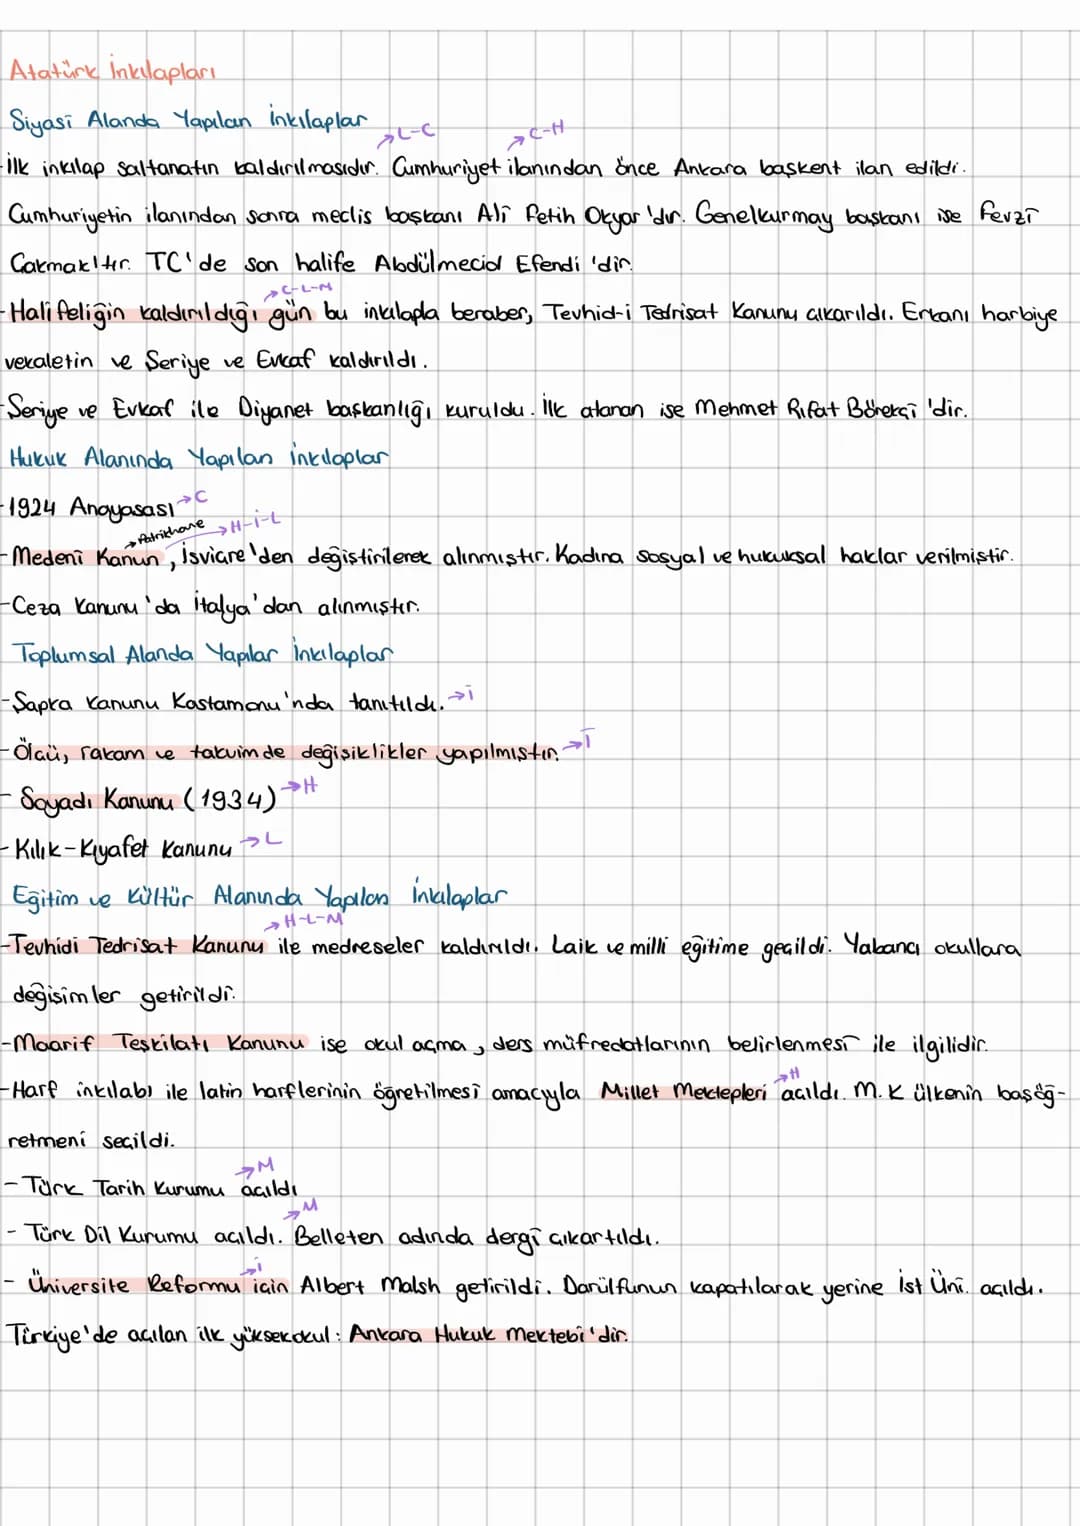 Atatürk İnkılapları
Siyasi Alanda Yapılan İnkılaplar
→L-C →C-H
-İlk inkılap saltanatın kaldırılmasıdır. Cumhuriyet ilanından önce Ankara başkent ilan edildi.
Cumhuriyetin ilanından sonra meclis başkanı Ali Fetih Okyar'dır. Genelkurmay başkanı ise Fevzi
Çakmak'tır. TC'de son halife Abdülmecid Efendi'dir.
→C-L-M
-Halifeliğin kaldırıldığı gün bu inkılapla beraber, Tevhid-i Tedrisat Kanunu çıkarıldı. Erkanı harbiye
vekaletin ve Şeriye ve Evkaf kaldırıldı.
-Şeriye ve Evkaf ile Diyanet başkanlığı kuruldu. İlk atanan ise Mehmet Rıfat Börekçi'dir.
Hukuk Alanında Yapılan İnkılaplar
-1924 Anayasası →C
→Patrikhane →H-İ-L
-Medeni Kanun, İsviçre'den değiştirilerek alınmıştır. Kadına sosyal ve hukuksal haklar verilmiştir.
-Ceza Kanunu'da İtalya'dan alınmıştır.
Toplumsal Alanda Yapılar İnkılaplar
-Şapka Kanunu Kastamonu'nda tanıtıldı. →İ
-Ölçü, rakam ve takvimde değişiklikler yapılmıştır. →İ
- Soyadı Kanunu (1934) →H
-Kılık-Kıyafet Kanunu →L
Eğitim ve Kültür Alanında Yapılan İnkılaplar
→H-L-M
-Tevhidi Tedrisat Kanunu ile medreseler kaldırıldı. Laik ve milli eğitime geçildi. Yabancı okullara
değişimler getirildi.
-Maarif Teşkilatı Kanunu ise okul açma, ders müfredatlarının belirlenmesi ile ilgilidir.
→H
-Harf inkılabı ile latin harflerinin öğretilmesi amacıyla Millet Mektepleri açıldı. M.K ülkenin başöğ-
retmeni seçildi.
→M
- Türk Tarih Kurumu açıldı
→M
- Türk Dil Kurumu açıldı. Belleten adında dergi çıkartıldı.
→İ
- Üniversite Reformu için Albert Malsh getirildi. Darülfunun kapatılarak yerine İst Üni. açıldı.
Türkiye'de açılan ilk yüksekokul: Ankara Hukuk Mektebi'dir.